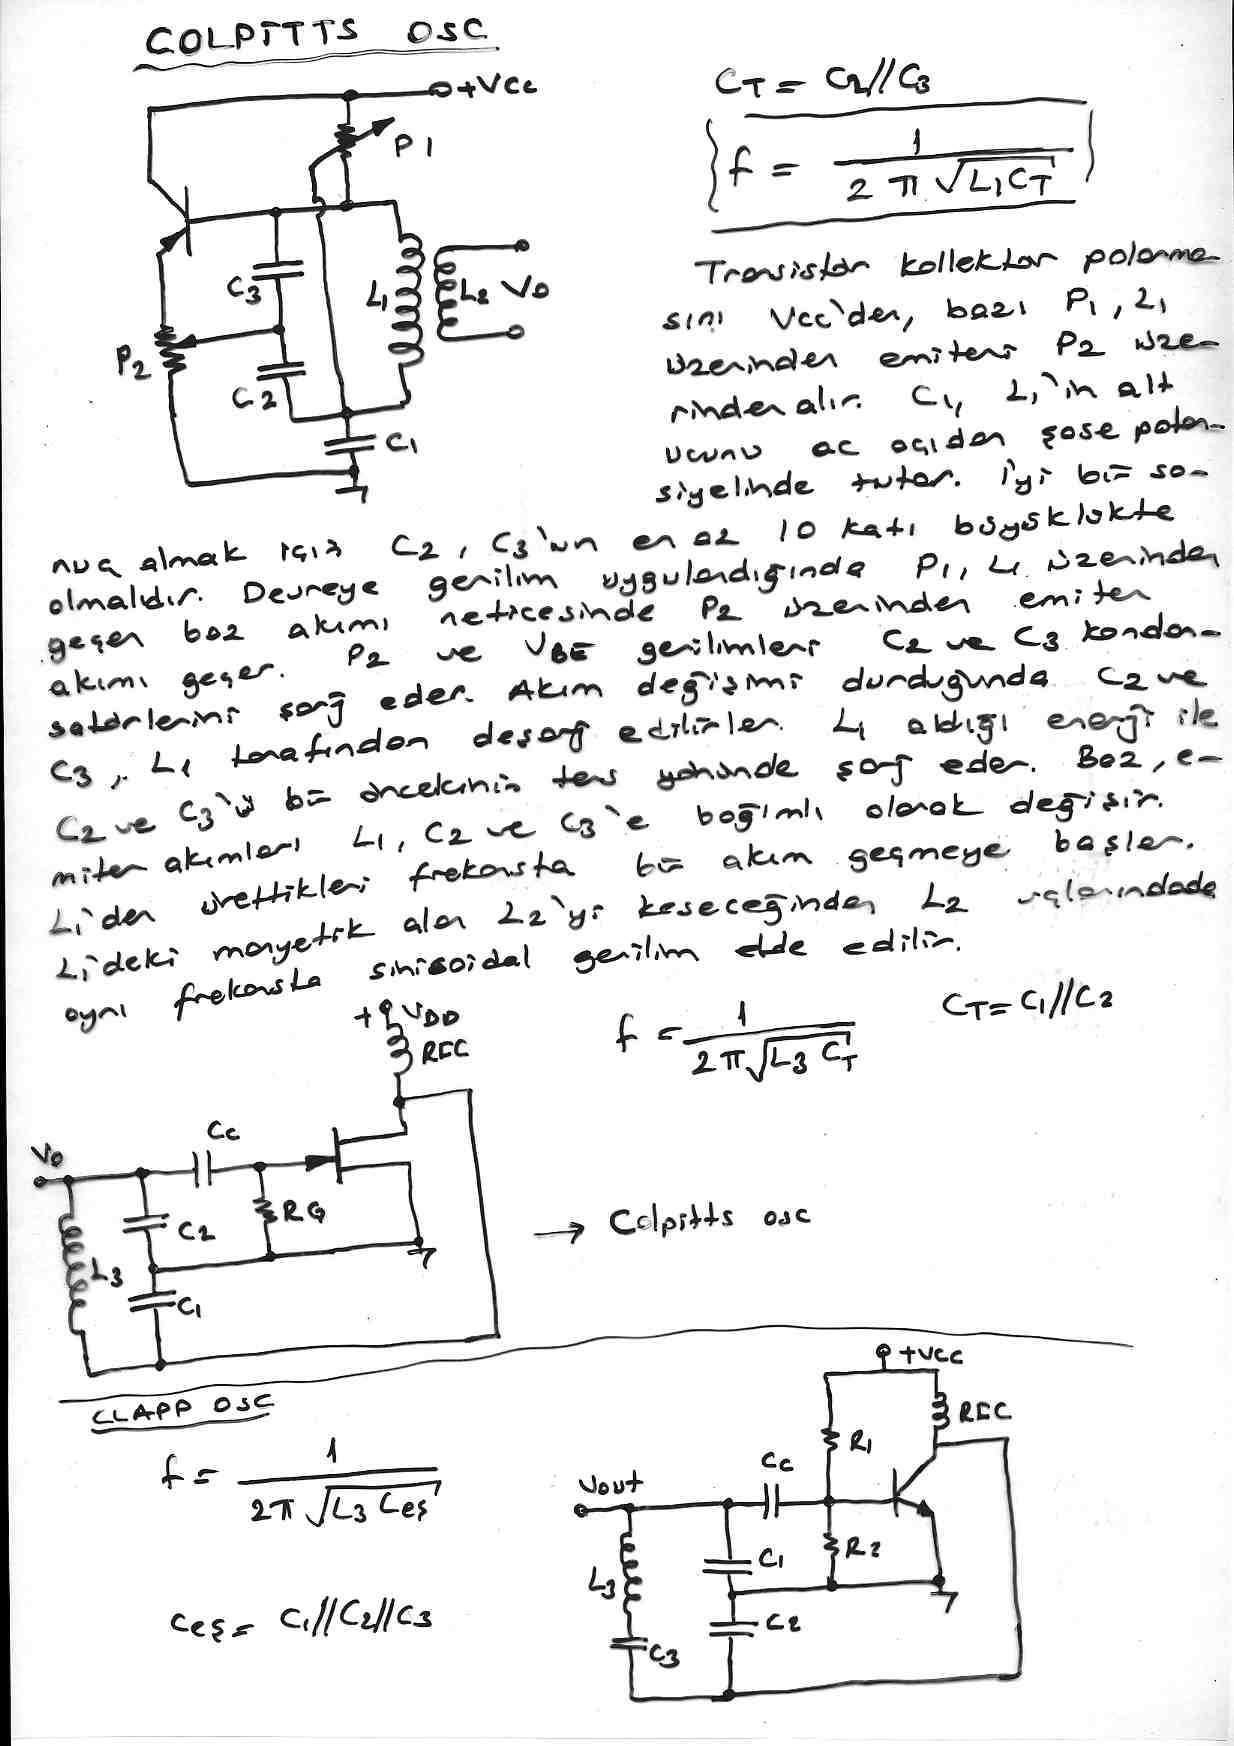 COLPİTTS OSC
+VCC
P1
C3
L1
L2
Vo
P2
C2
C1
CT = C2//C3
f = 1 / 2π√L1CT
Transistör kollektör polarma-
sını Vcc'den, bazı P1, L1
üzerinden emiteri P2 üze-
rinden alır. C1, L1'in alt
ucunu ac açıdan şase potan-
siyelinde tutar. İyi bir so-
nuç almak için C2, C3'ün en az 10 katı büyüklükte
olmalıdır. Devreye gerilim uygulandığında P1, L1 üzerinden
geçen baz akımı neticesinde P2 üzerinden emiter
akımı geçer. P2 ve VBE gerilimleri C2 ve C3 kondan-
satörlerini şarj eder. Akım değişimi durduğunda C2 ve
C3, L1 tarafından deşarj edilirler. L1 aldığı enerji ile
C2 ve C3'ü bir öncekinin ters yönünde şarj eder. Baz, e-
miter akımları L1, C2 ve C3'e bağımlı olarak değişir.
L1'den ürettikleri frekansta bir akım geçmeye başlar.
L1'deki manyetik alan L2'yi keseceğinden L2 uçlarındada
aynı frekansta sinisoidal gerilim elde edilir.
f = 1 / 2π√L3 CT
CT = C1//C2
+VDD
RFC
Vo
Cc
C2
RG
L3
C1
→ Colpitts osc
CLAPP OSC
f = 1 / 2π√L3 Ceş
Ceş = C1//C2//C3
+VCC
RFC
R1
Cc
Vout
C1
R2
L3
C2
C3